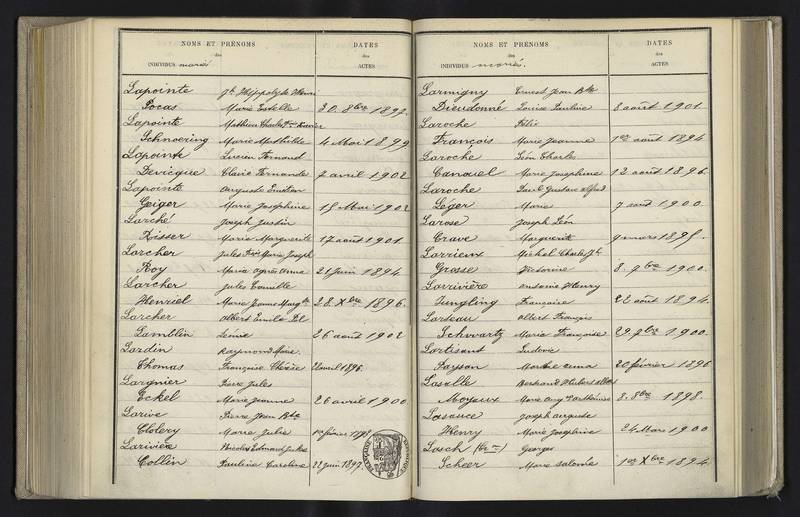 NOMS ET PRÉNOMS
des
INDIVIDUS mariés
DATES
des
ACTES
Lapointe Jh Hippolyte Henri
Pocas Marie Estelle 20. 8bre 1897.
Lapointe Mathieu Charles Xavier
Schnoering Marie Mathilde 4 Mai 1899
Lapointe Lucien Fernand
Devicque Claire Fernande 7 avril 1902
Lapointe Auguste Emilien
Geiger Marie Joséphine 15 Mai 1902
Larché Joseph Justin
Risser Marie Marguerite 17 août 1901.
Larcher Jules Marie Joseph
Roy Maria Agnès Anna 21 Juin 1894
Larcher Jules Camille
Henriel Marie Jeanne Margte 28. Xbre 1896.
Larcher Albert Emile
Lamblin Léonie 26 août 1902
Lardin Raymond Marie
Thomas Françoise Thérèse 22 avril 1896.
Largnier Pierre Jules
Eckel Marie Jeanne 26 avril 1900
Larive Pierre Jean Bte
Clolery Marie Julie 1er février 1898
Larivière Nicolas Edmond Jules
Collin Pauline Caroline 22 Juin 1897.
NOMS ET PRÉNOMS
des
INDIVIDUS mariés.
DATES
des
ACTES
Larmigny Ernest Jean Bte
Dieudonné Louise Pauline 8 août 1901
Laroche Félix
François Marie Jeanne 1er août 1894
Laroche Léon Charles
Canouel Marie Joséphine 12 août 1896.
Laroche Paul Gustave Alfred
Léger Marie 7 août 1900.
Larose Joseph Léon
Crave Marguerite 9 mars 1895.
Larrieux Michel Charles Jh
Grosse Victorine 8. 9bre 1900.
Larrivière Antoine Henry
Jungling Françoise 22 août 1894.
Larseau Albert François
Schwartz Marie Françoise 29. 9bre 1900.
Lartisant Ludovic
Payson Marthe Anna 20 février 1896
Lasalle Bertrand Hubert Albert
Moyeux Marie 8. 8bre 1898.
Lasauce Joseph Auguste
Henry Marie Joséphine 24 Mars 1900
Lasché Georges
Scheer Marie Salomée 1er Xbre 1894.